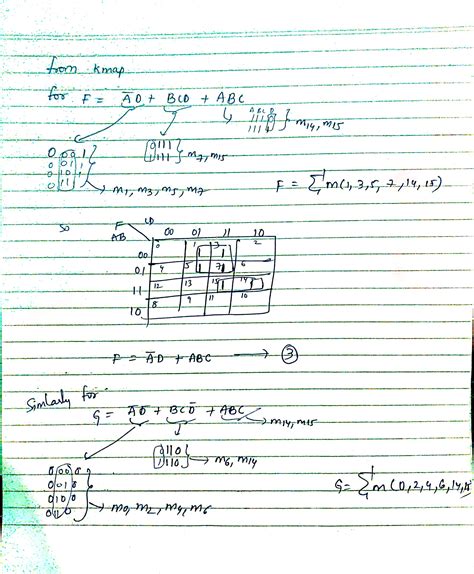 from kmap
for F = A̅D + BCD + ABC
A B C D
1 1 1 0
1 1 1 1 } m14, m15
0 1 1 1
1 1 1 1 } m7, m15
0 0 0 1
0 0 1 1
0 1 0 1
0 1 1 1
→ m1, m3, m5, m7
F = Σ m(1, 3, 5, 7, 14, 15)
so
F CD
AB 00 01 11 10
00 0 1 1 3 1 2
01 4 5 1 7 1 6
11 12 13 15 1 14 1
10 8 9 11 10
F = A̅D + ABC → ③
Similarly for
G = A̅D̅ + BCD̅ + ABC → m14, m15
0 1 1 0
1 1 1 0 } → m6, m14
0 0 0 0
0 0 1 0
0 1 0 0
0 1 1 0
→ m0, m2, m4, m6
G = Σ m(0, 2, 4, 6, 14, 15